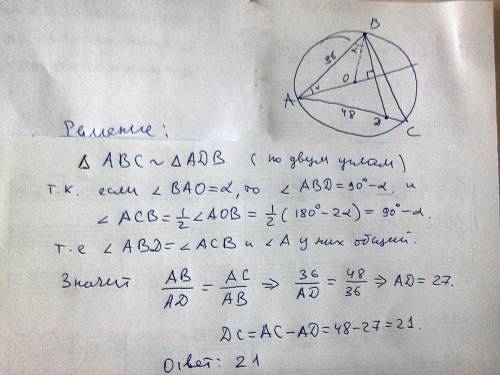 B
36
α
O
A
α
48
D
C
Решение:
Δ ABC ~ Δ ADB (по двум углам)
т.к. если ∠ BAO = α, то ∠ ABD = 90° - α. и
∠ ACB = 1/2 ∠ AOB = 1/2 (180° - 2α) = 90° - α.
т.е ∠ ABD = ∠ ACB и ∠ A у них общий.
Значит AB/AD = AC/AB ⇒ 36/AD = 48/36 ⇒ AD = 27.
DC = AC - AD = 48 - 27 = 21.
Ответ: 21